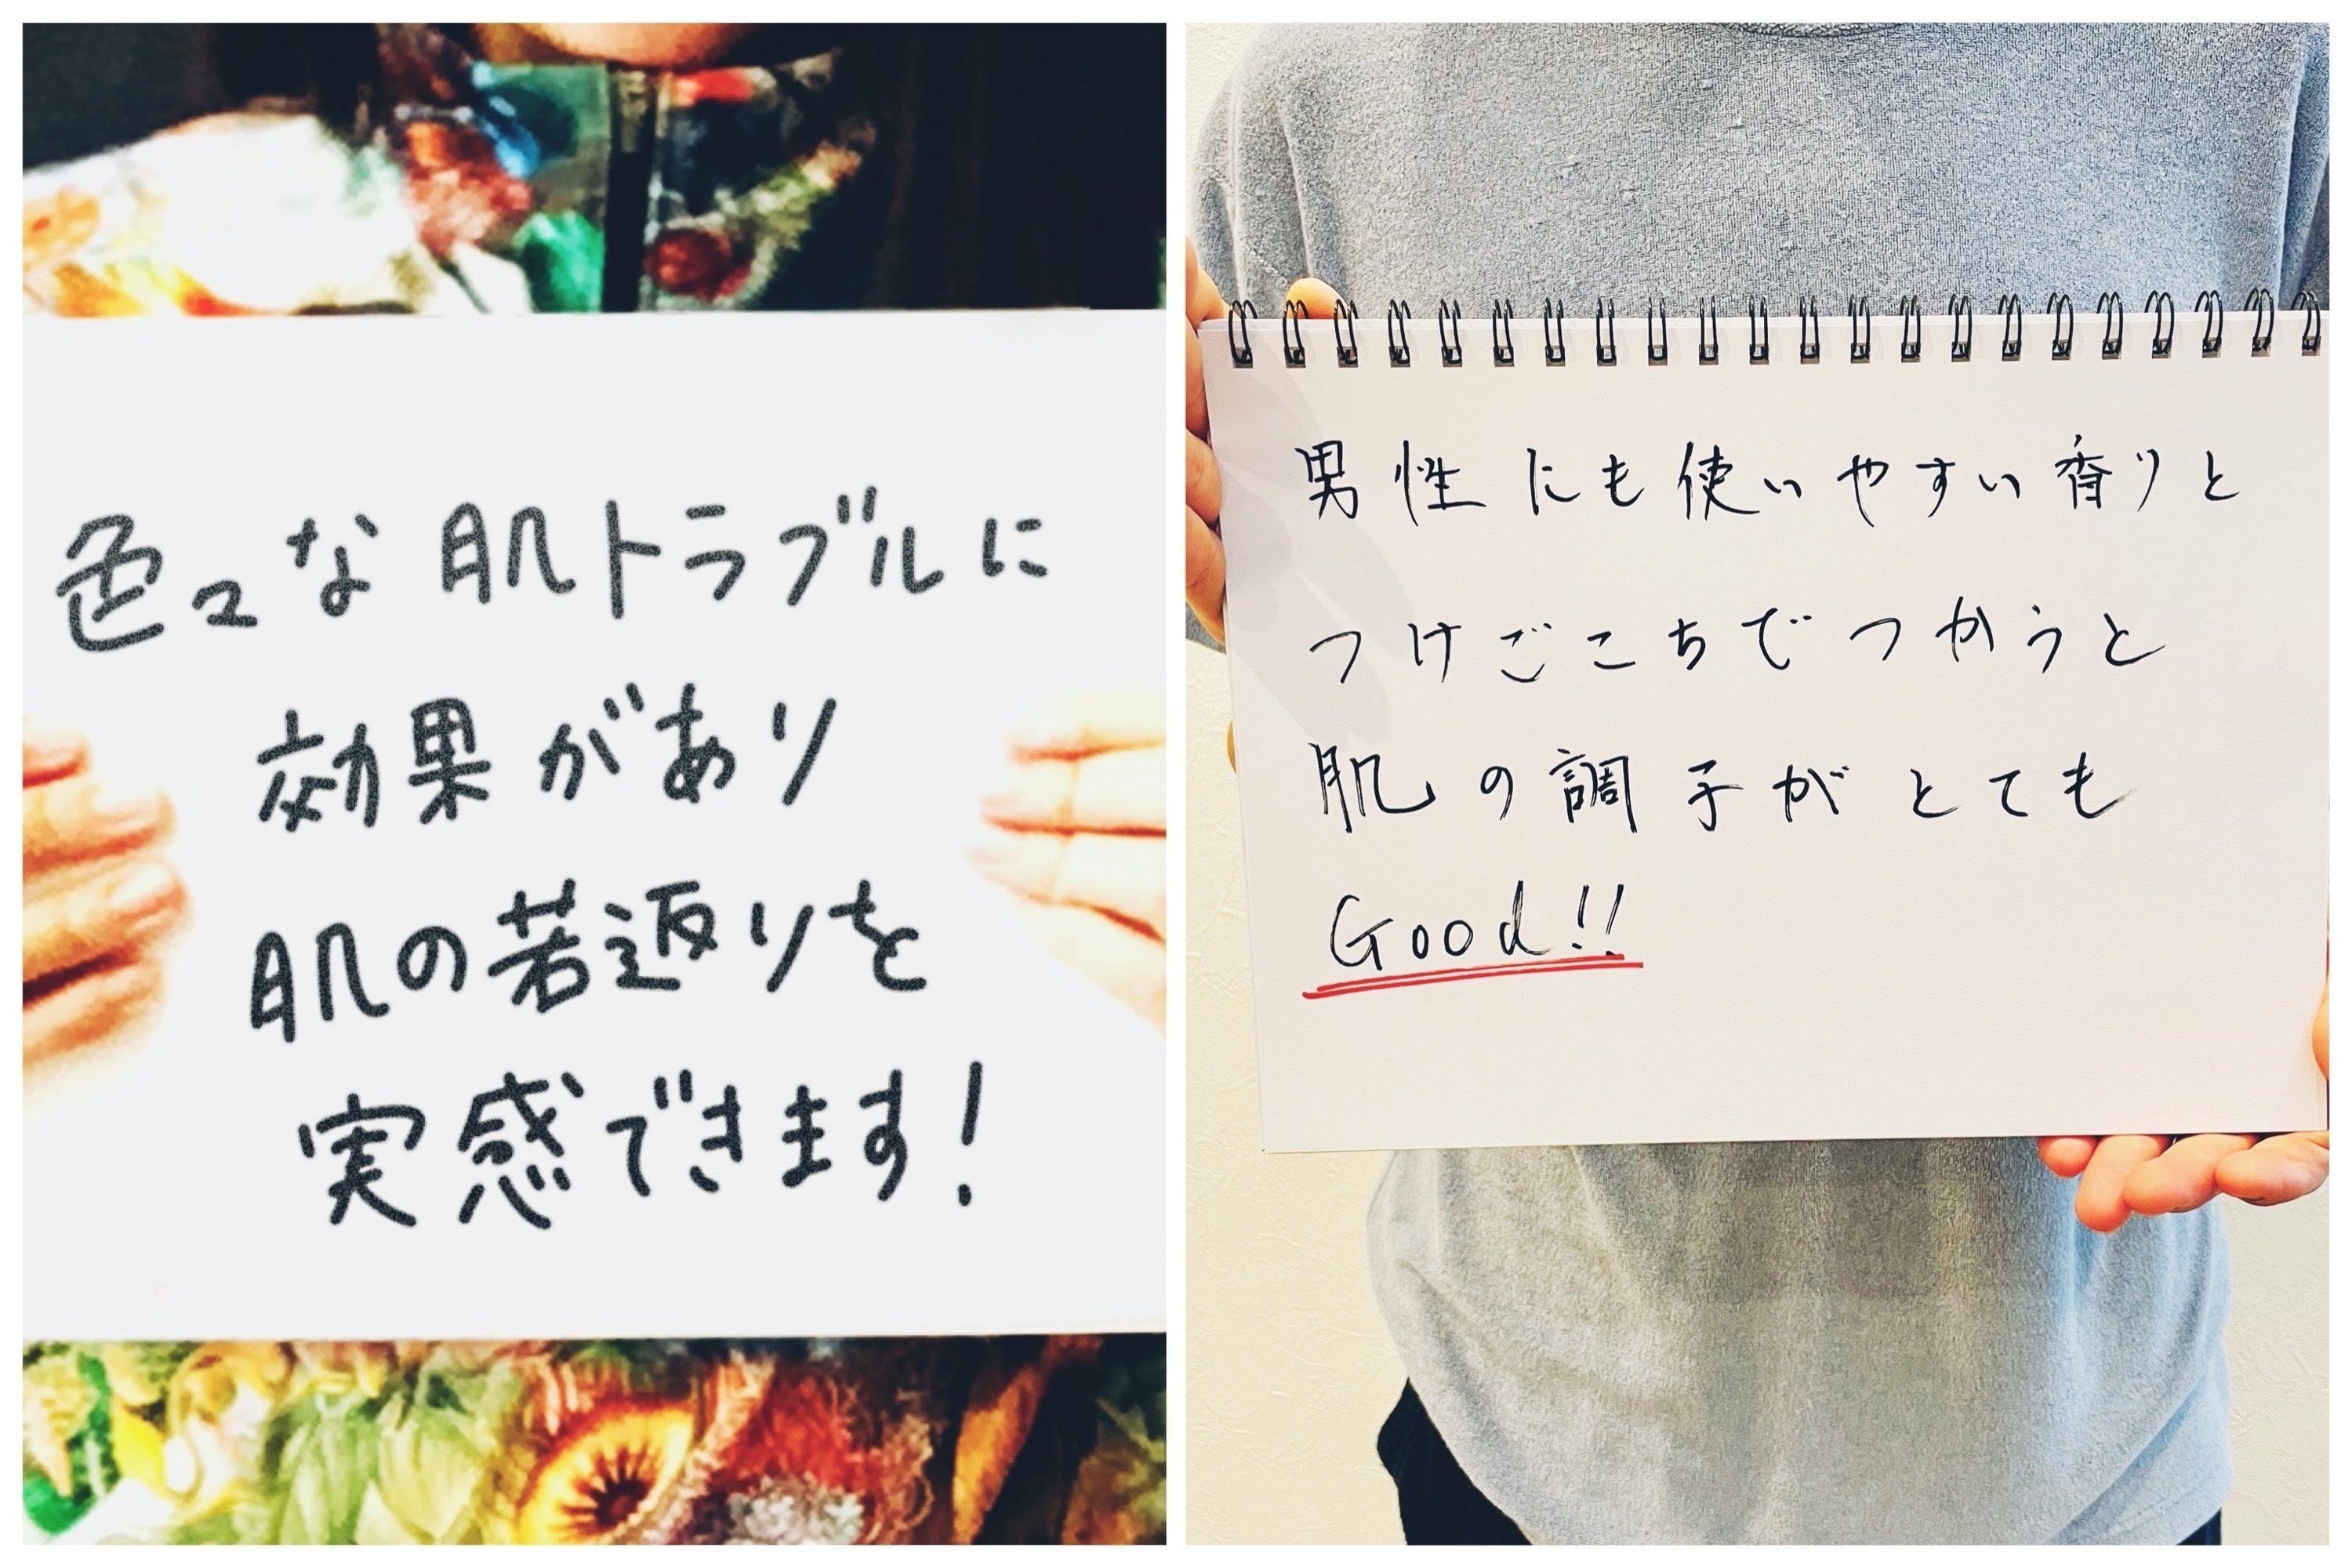 色々な肌トラブルに
効果があり
肌の若返りを
実感できます!
男性にも使いやすい香りと
つけごこちでつかうと
肌の調子がとても
Good!!